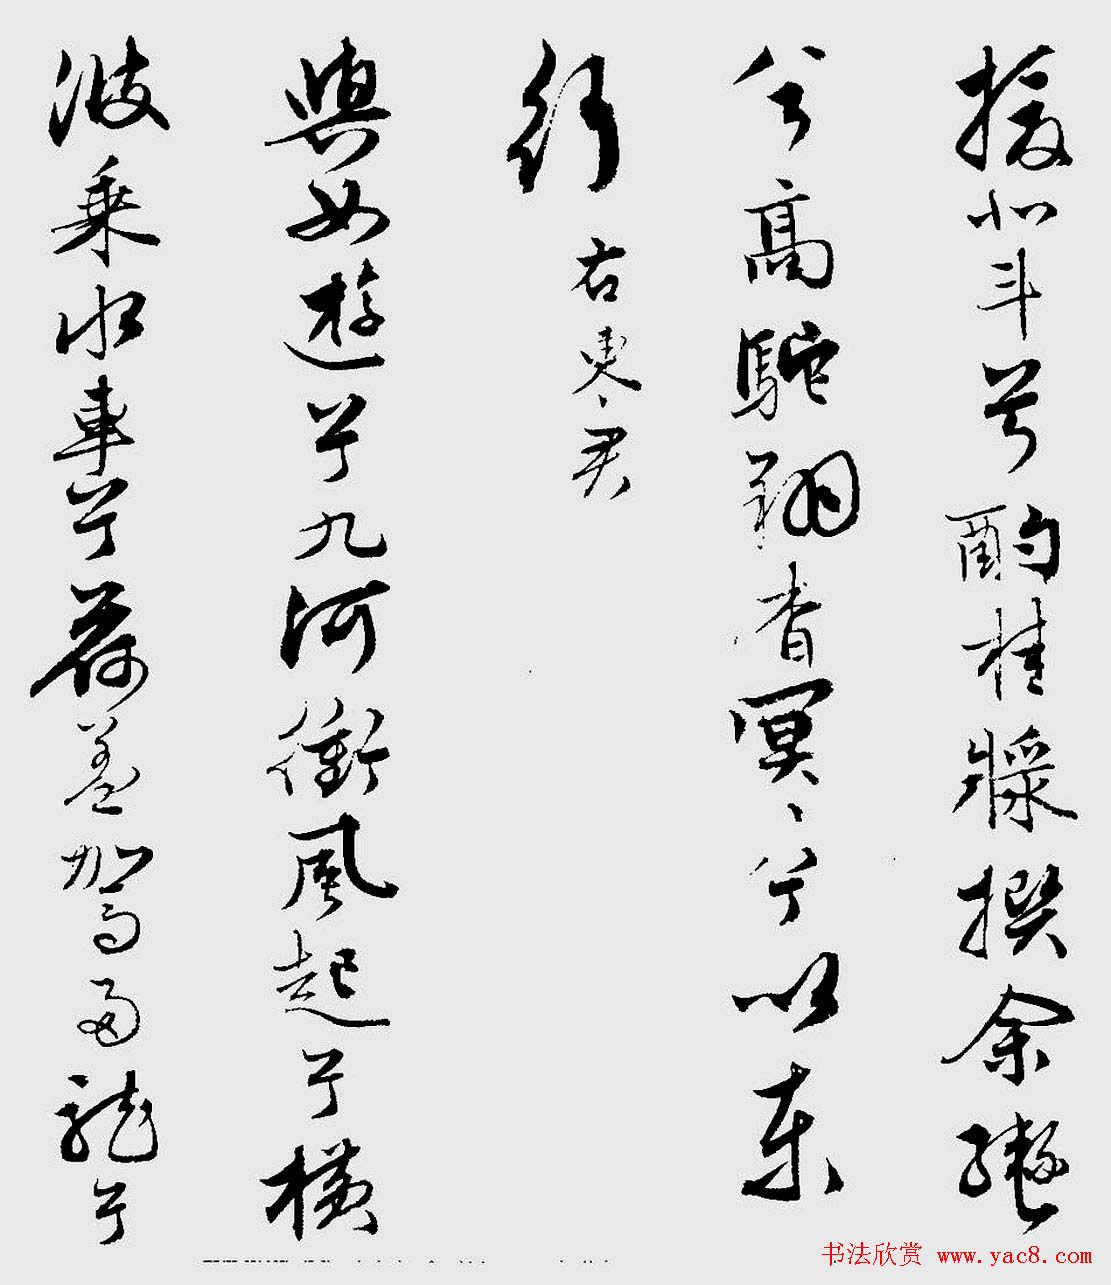 援北斗兮酌桂漿撰余轡
兮高駝翔杳冥〻兮以東
行 右東君
與女遊兮九河衝風起兮橫
波乘水車兮荷蓋駕兩龍兮
书法欣赏 www.yac8.com